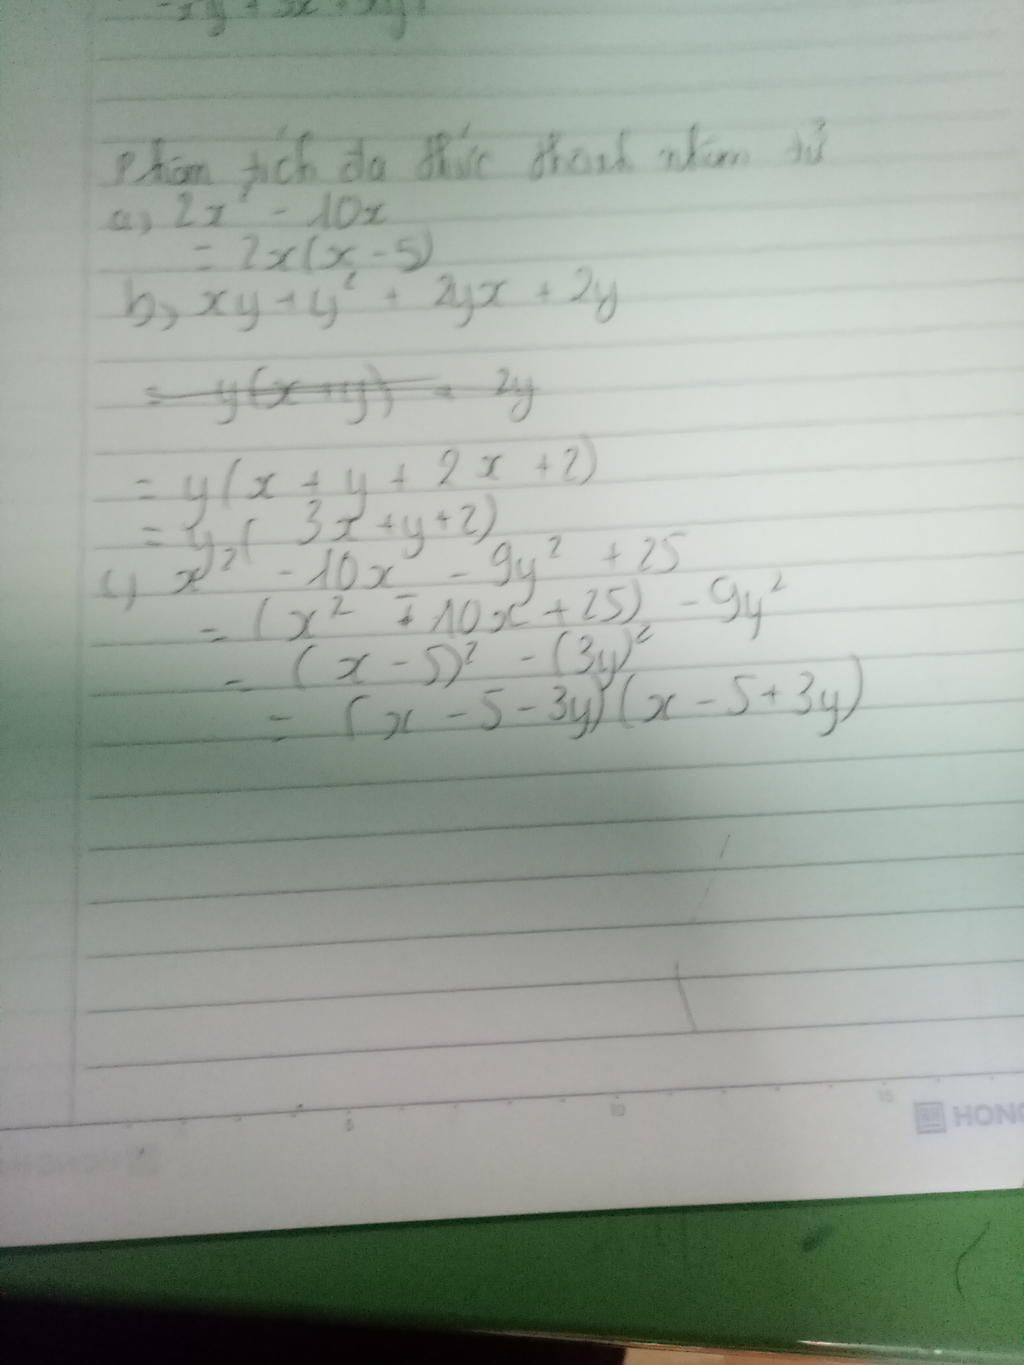 Phân tích đa thức thành nhân tử
a, 2x² - 10x
= 2x(x - 5)
b, xy + y² + 2yx + 2y
= y(x + y) + 2y
= y(x + y + 2x + 2)
= y(3x + y + 2)
c, x² - 10x - 9y² + 25
= (x² - 10x + 25) - 9y²
= (x - 5)² - (3y)²
= (x - 5 - 3y)(x - 5 + 3y)
5
10
15